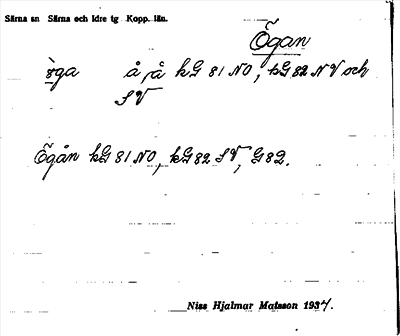 Särna sn Särna och Idre tg Kopp. län.
Ögan
å, på kG 81 NO, kG 82 NV och
SV
Ögån kG 81 NO, kG 82 SV, G 82.
Niss Hjalmar Matsson 1934.